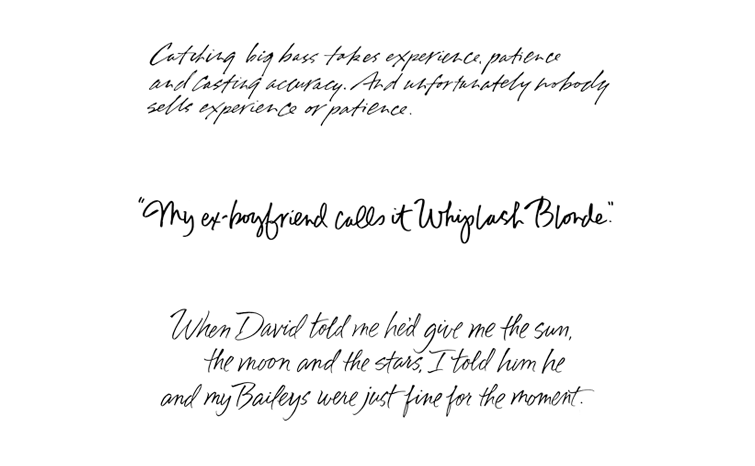 Catching big bass takes experience, patience
and casting accuracy. And unfortunately nobody
sells experience or patience.
"My ex-boyfriend calls it Whiplash Blonde."
When David told me he'd give me the sun,
the moon and the stars, I told him he
and my Baileys were just fine for the moment.